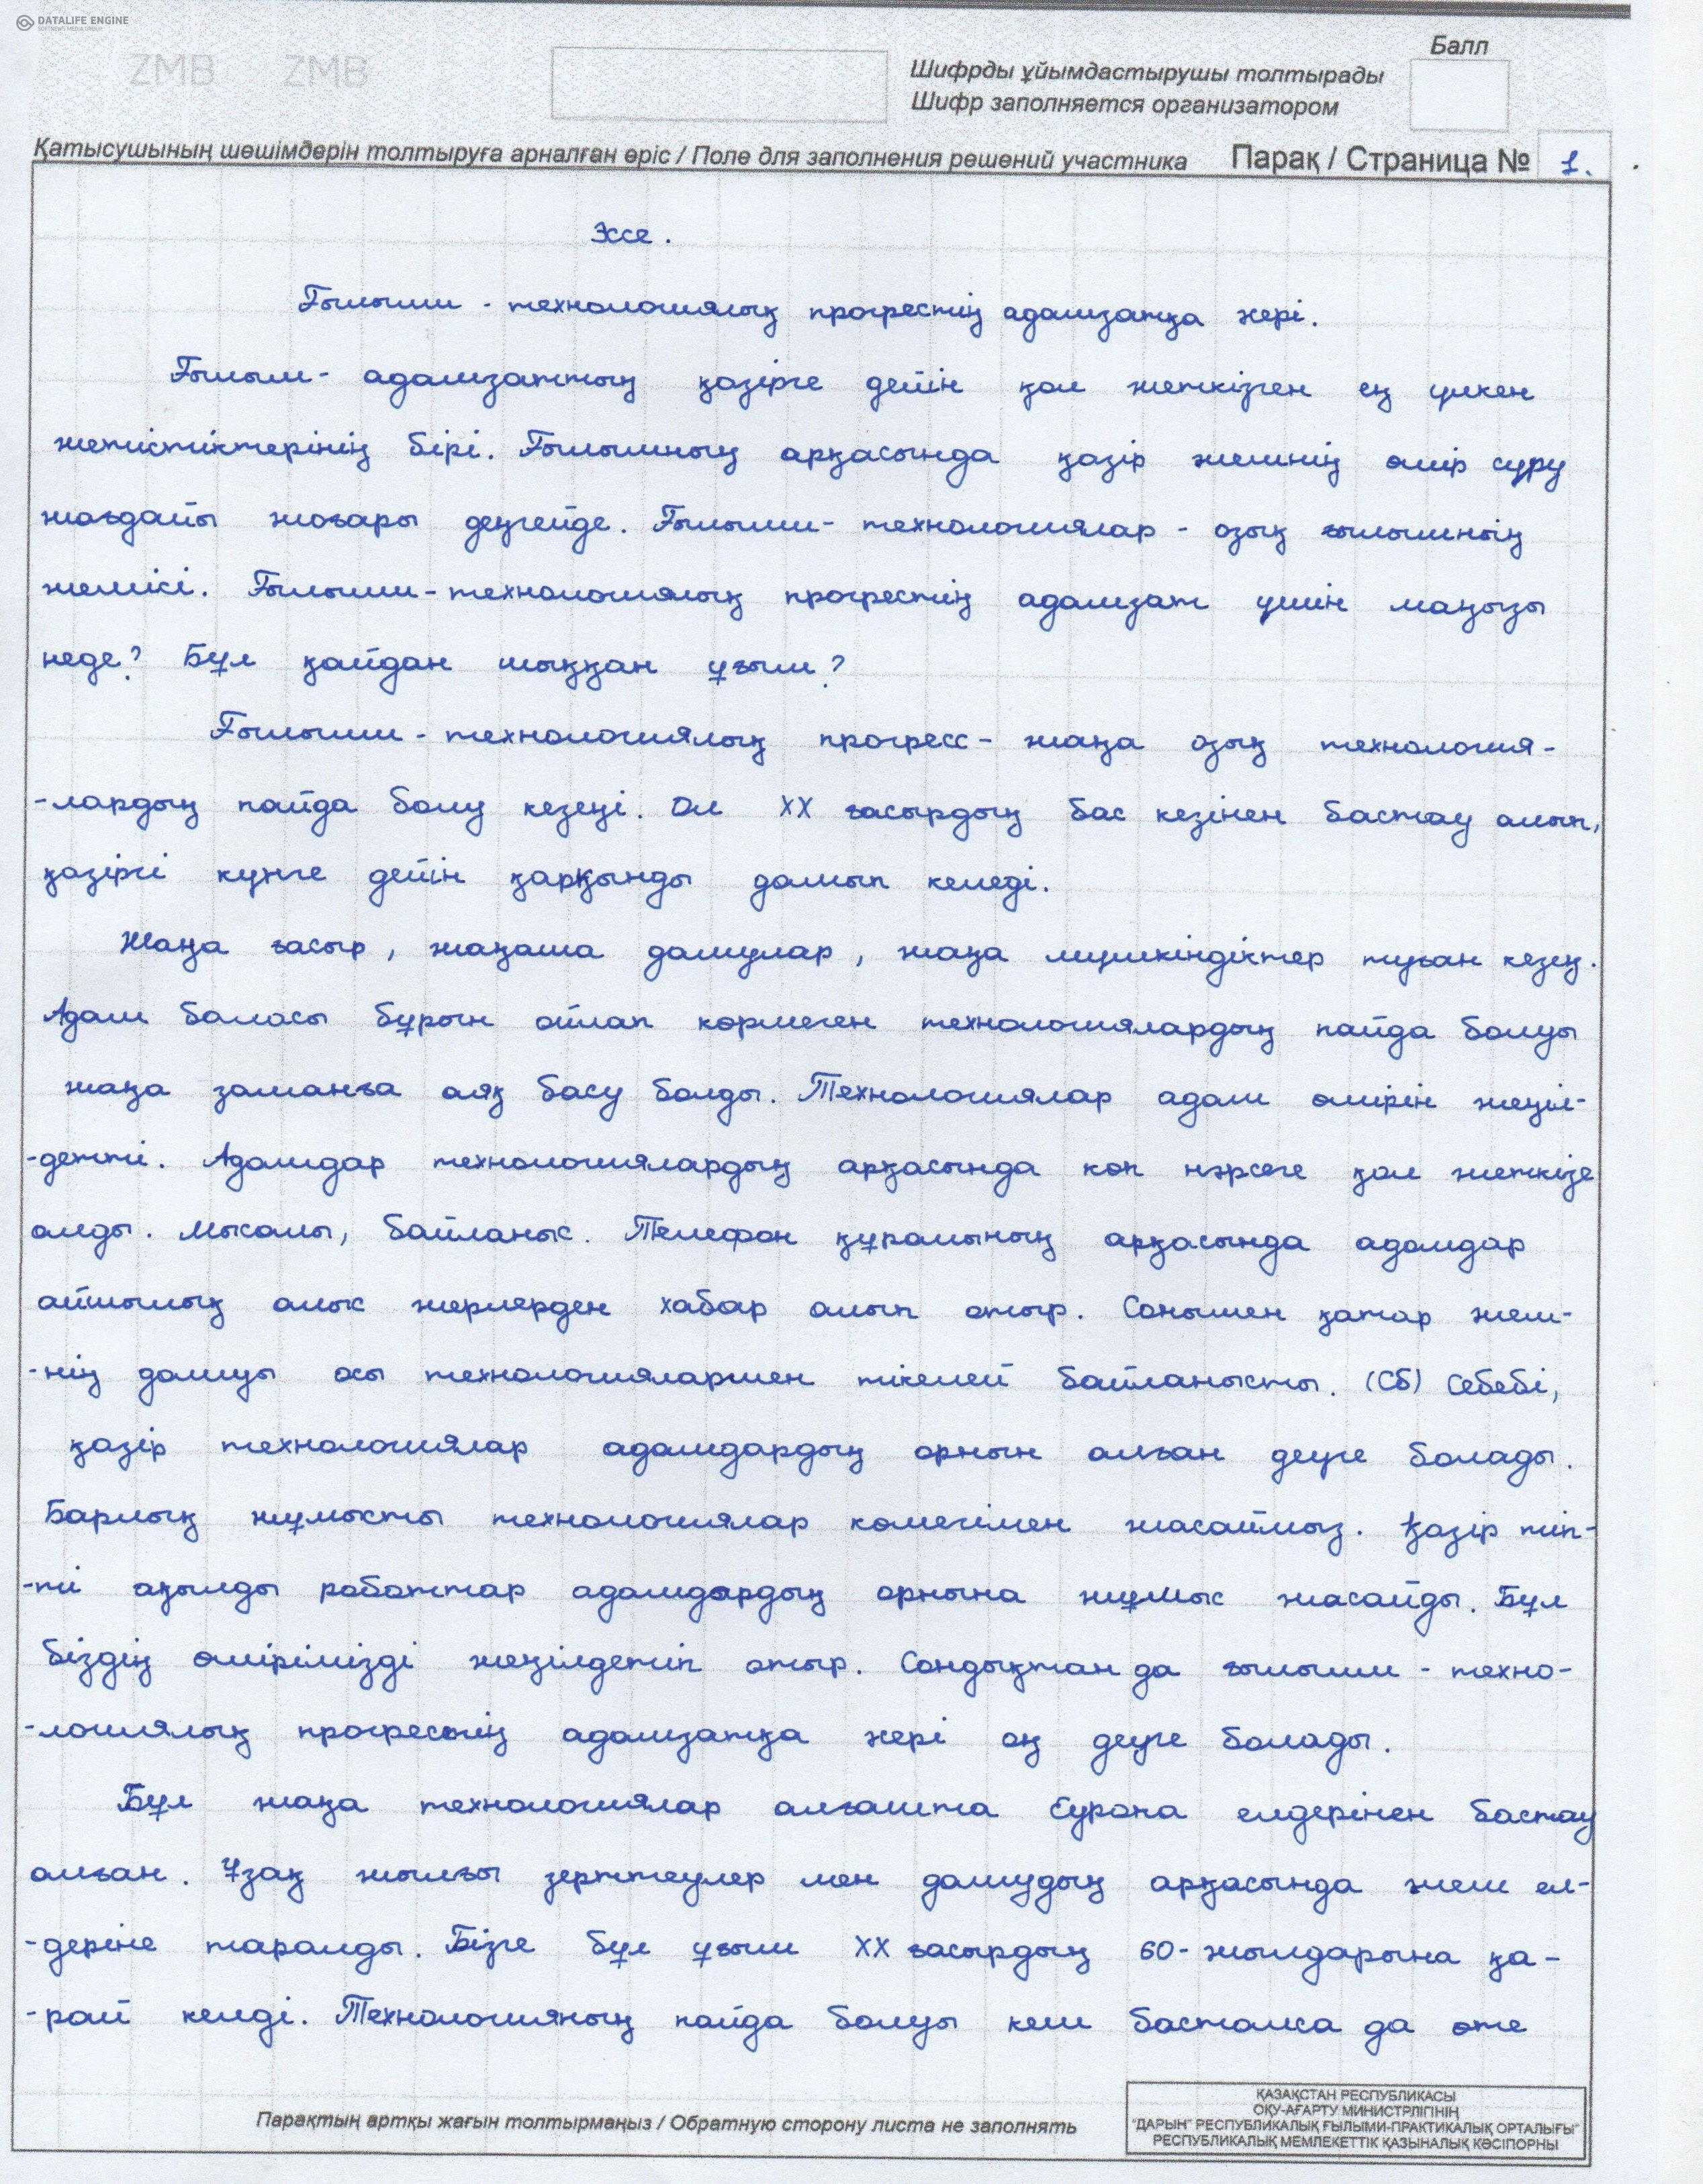 DATALIFE ENGINE
SOFTNEWS MEDIA GROUP
ZMB ZMB
Балл
Шифрды ұйымдастырушы толтырады
Шифр заполняется организатором
Қатысушының шешімдерін толтыруға арналған өріс / Поле для заполнения решений участника Парақ / Страница № 1.
Эссе.
Ғылыми - технологиялық прогрестің адамзатқа кері.
Ғылым - адамзаттың қазірге дейін қол жеткізген ең үлкен
жетістіктерінің бірі. Ғылымның арқасында қазір әлемнің өмір сүру
жағдайы жоғары деңгейде. Ғылыми- технологиялар - озық ғылымның
жемісі. Ғылыми-технологиялық прогрестің адамзат үшін маңызы
неде? Бұл қайдан шыққан ұғым?
Ғылыми - технологиялық прогресс - жаңа озық технология-
-лардың пайда болу кезеңі. Ол XX ғасырдың бас кезінен бастау алып,
қазіргі күнге дейін қарқынды дамып келеді.
Жаңа ғасыр, жаңаша дамулар, жаңа мүмкіндіктер туған кезең.
Адам баласы бұрын ойлап көрмеген технологиялардың пайда болуы
жаңа заманға аяқ басу болды. Технологиялар адам өмірін жеңіл-
-детті. Адамдар технологиялардың арқасында көп нәрсеге қол жеткізе
алды. Мысалы, байланыс. Телефон құралының арқасында адамдар
айшылық алыс жерлерден хабар алып отыр. Сонымен қатар әлем-
-нің дамуы осы технологиялармен тікелей байланысты. (Сб) Себебі,
қазір технологиялар адамдардың орнын алған деуге болады.
Барлық жұмысты технологиялар көмегімен жасаймыз. Қазір тіп-
-ті ақылды роботтар адамдардың орнына жұмыс жасайды. Бұл
біздің өмірімізді жеңілдетіп отыр. Сондықтан да ғылыми - техно-
-логиялық прогрестің адамзатқа кері оң деуге болады.
Бұл жаңа технологиялар алғашта Еуропа елдерінен бастау
алған. Ұзақ жылғы зерттеулер мен дамудың арқасында әлем ел-
-деріне таралды. Бізге бұл ұғым XX ғасырдың 60-жылдарына қа-
-рай келді. Технологияның пайда болуы кеш басталса да өте
Парақтың артқы жағын толтырмаңыз / Обратную сторону листа не заполнять
ҚАЗАҚСТАН РЕСПУБЛИКАСЫ
ОҚУ-АҒАРТУ МИНИСТРЛІГІНІҢ
"ДАРЫН" РЕСПУБЛИКАЛЫҚ ҒЫЛЫМИ-ПРАКТИКАЛЫҚ ОРТАЛЫҒЫ"
РЕСПУБЛИКАЛЫҚ МЕМЛЕКЕТТІК ҚАЗЫНАЛЫҚ КӘСІПОРНЫ